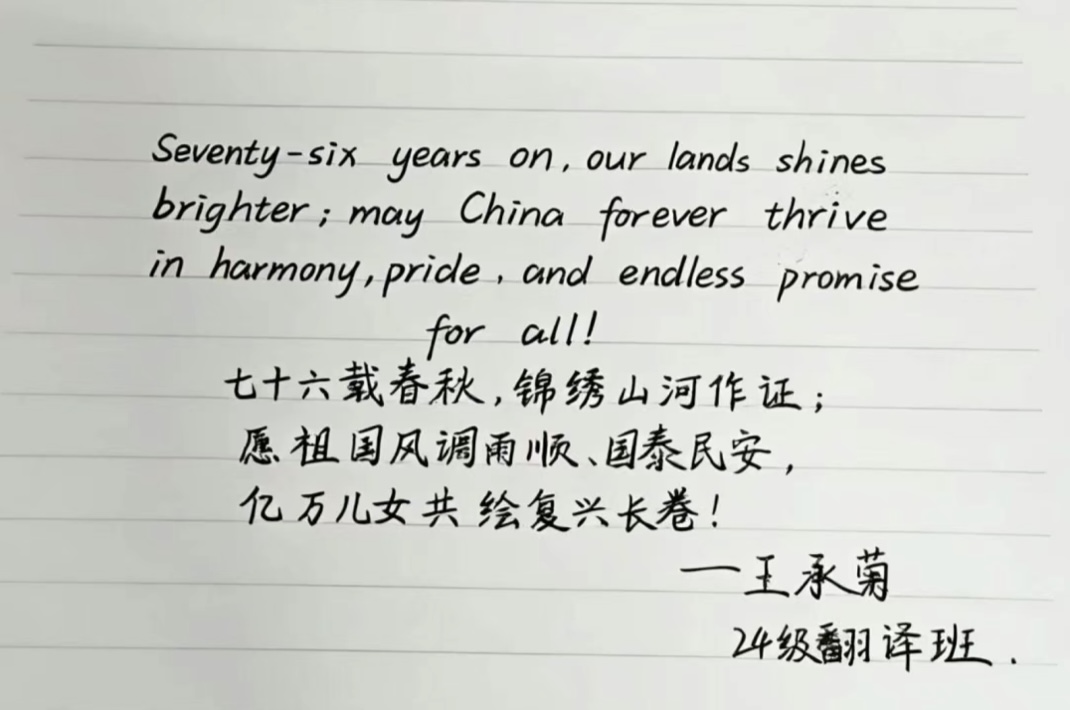 Seventy-six years on, our lands shines
brighter; may China forever thrive
in harmony, pride, and endless promise
for all!
七十六载春秋,锦绣山河作证;
愿祖国风调雨顺、国泰民安,
亿万儿女共绘复兴长卷!
—王承菊
24级翻译班.